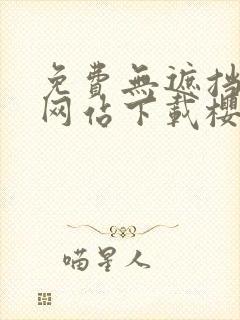 免費無遮挡
网站下載櫻
喵星人